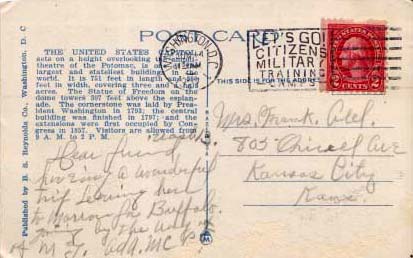 POST CARD
THE UNITED STATES CAPITOL
acts on a height overlooking the
theatre of the Potomac, is one
largest and stateliest buildings
world. It is 751 feet in length and
feet in width, covering three and a half
acres. The Statue of Freedom on the
dome towers 307 feet above the esplan-
ade. The cornerstone was laid by Pres-
ident Washington in 1793; the central
building was finished in 1797; and the
extensions were first occupied by Con-
gress in 1857. Visitors are allowed from
9 A. M. to 2 P. M.
Published by B. S. Reynolds Co., Washington, D. C.
THIS SIDE IS FOR THE ADDRESS
WASHINGTON, D.C.
LET'S GO!
CITIZENS
MILITARY
TRAINING
CAMPS
2 CENTS 2
Mrs. Frank
805 Ave
Kansas City
Kans.
Dear
a wonderful
trip leaving here
to Morrow for Buffalo
going by the way
of
M